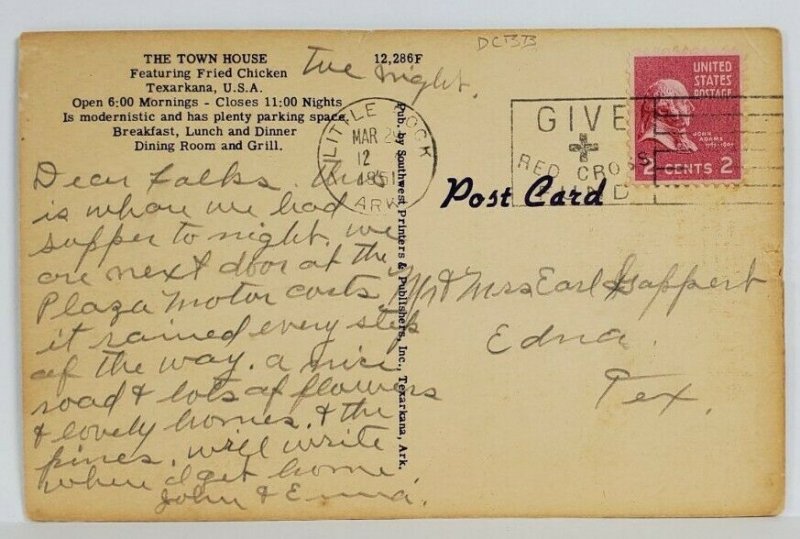 THE TOWN HOUSE
Featuring Fried Chicken
Texarkana, U.S.A.
Open 6:00 Mornings - Closes 11:00 Nights
Is modernistic and has plenty parking space.
Breakfast, Lunch and Dinner
Dining Room and Grill.
12,286F
DCBB
Tue night.
LITTLE ROCK
MAR 2
12
1951
ARK
GIVE
+
RED CROSS
UNITED
STATES
POSTAGE
JOHN
ADAMS
2 CENTS 2
Post Card
Pub. by Southwest Printers & Publishers, Inc., Texarkana, Ark.
Dear folks. this
is where we had
supper to night. we
are next door at the
Plaza Motor Costs
it rained every step
of the way. a nice
road & lots of flowers
& lovely homes. & the
pines. will write
when I get home.
John & Emma.
Mr & Mrs Earl Gappert
Edna.
Tex.